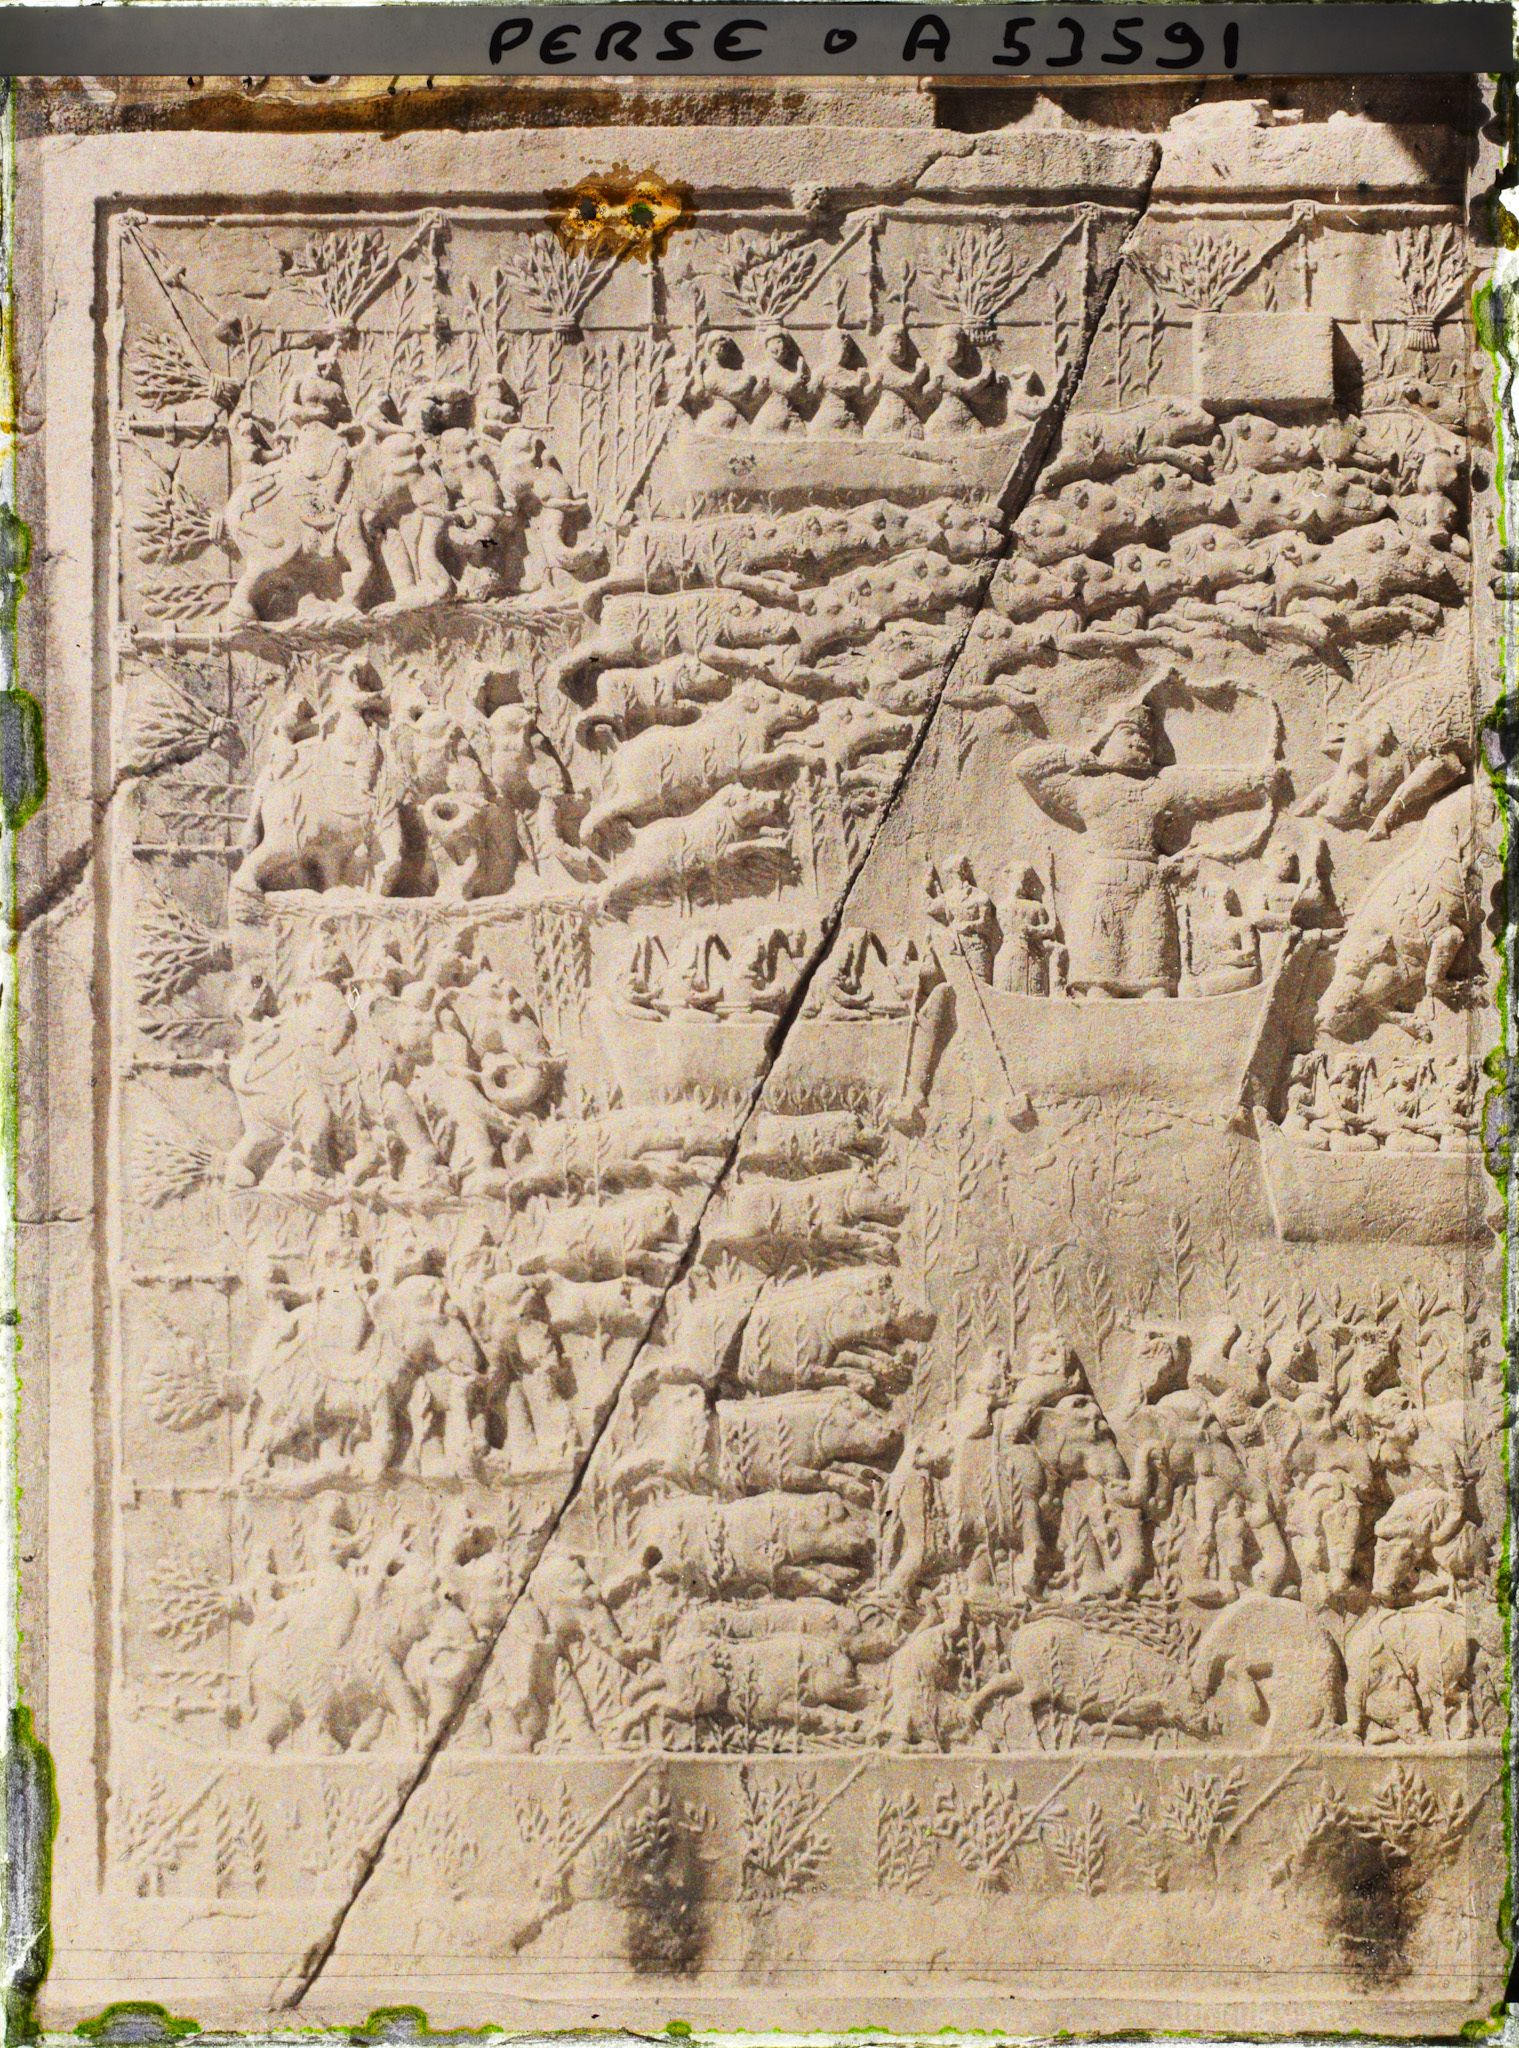 PERSE o A 53591